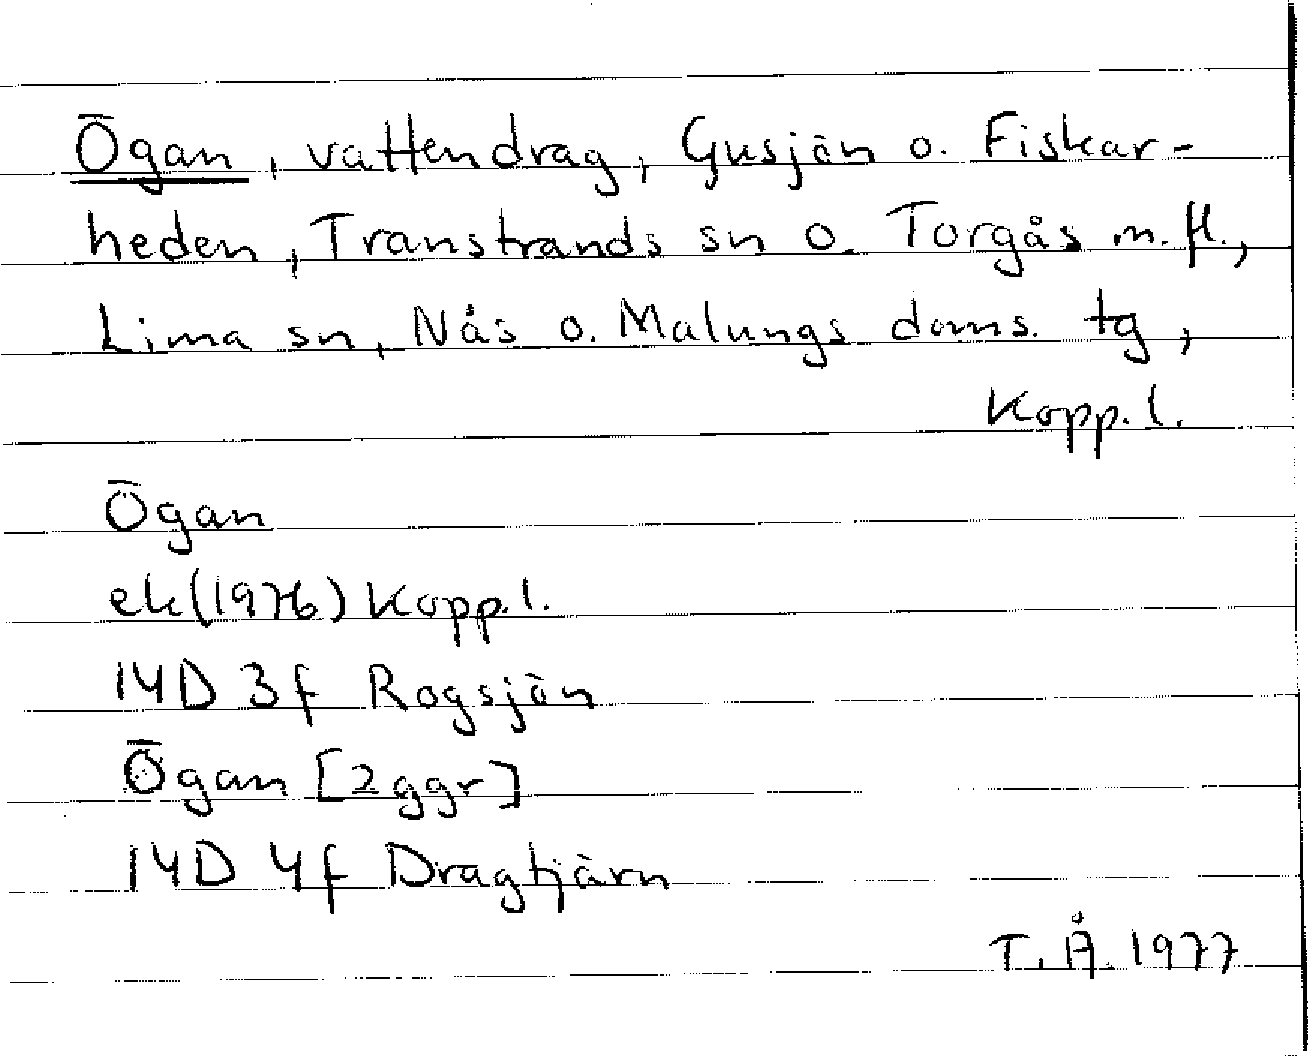 Ögan, vattendrag, Gusjön o. Fiskar-
heden, Transtrands sn o. Torgås m.fl.,
Lima sn, Nås o. Malungs doms. tg,
Kopp.l.
Ögan
ek(1976) Kopp.l.
14D 3f Rogsjön
Ögan [2 ggr]
14D 4f Dragtjärn
T.Å. 1977